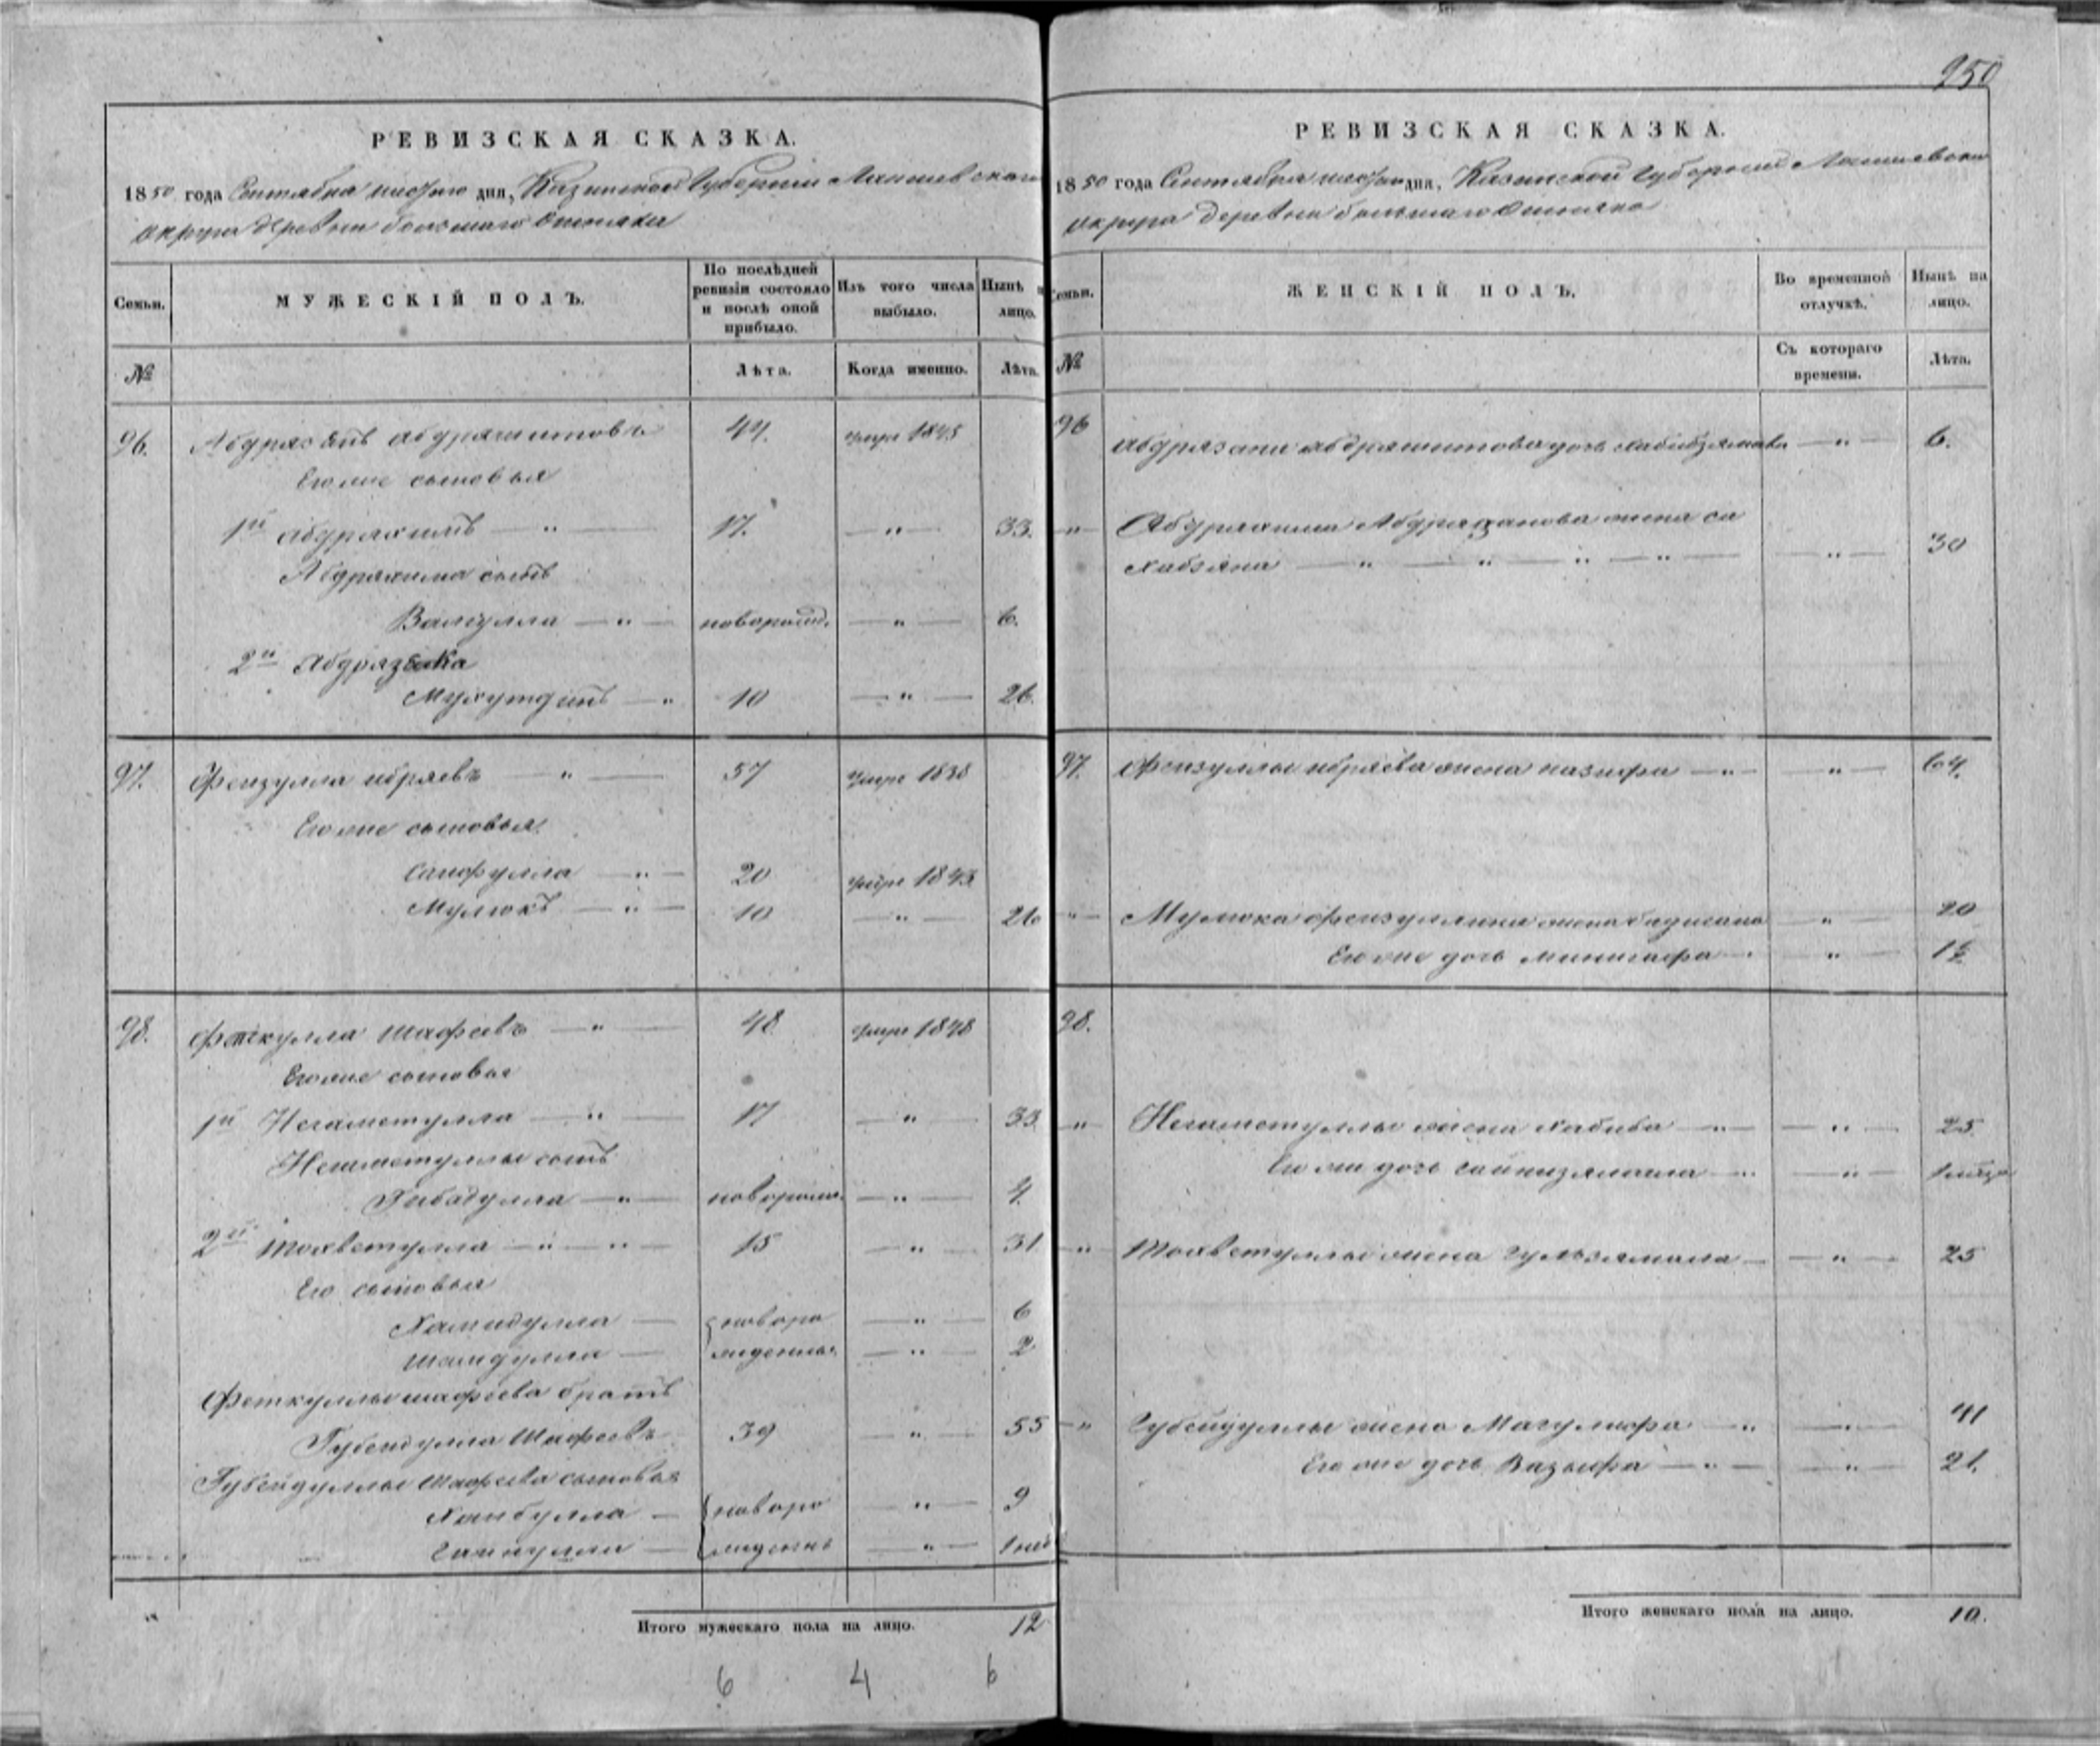 РЕВИЗСКАЯ СКАЗКА.
1850 года Сентября дня, Казанской Губернии Лаишевскаго
округа деревни большаго Ошняка
Семьи.
МУЖЕСКІЙ ПОЛЪ.
По послѣдней ревизіи состояло и послѣ оной прибыло.
Изъ того числа выбыло.
Нынѣ н лицо.
№
Лѣта.
Когда именно.
Лѣта.
96. Абдрязякъ Абдряшитовъ 44. умре 1845
Его же сыновья
1й Абдряхимъ — " — 17. — " — 33.
Абдряхима сынъ
Валиулла — " — новорожд. — " — 6.
2й Абдрязяка
Мухутдинъ — " 10 — " — 26.
97. Фейзулла ибряевъ — " — 57 умре 1838
Его же сыновья
Сайфулла — " — 20 умре 1843
Мулюкъ — " — 10 — " — 26
98. Феткулла Шафеевъ — " — 48 умре 1848
Его же сыновья
1й Негаметулла — " — 17 — " — 33
Негаметуллы сынъ
Гибадулла — " — новорожд. — " — 4.
2й — " — " — 15 — " — 31
Его сыновья
Хамидулла — новоро — " — 6
Шагидулла — жденные — " — 2
Феткуллы шафеева братъ
Губейдулла Шафеевъ 39 — " — 55
Губейдуллы Шафеева сыновья
Хайбулла — новоро — " — 9
— жденны — " — 1
Итого мужескаго пола на лицо. 12
6 4 6
950
РЕВИЗСКАЯ СКАЗКА.
1850 года Сентября дня, Казанской Губернии Лаишевскаго
округа деревни большаго Ошняка
Семьи.
ЖЕНСКІЙ ПОЛЪ.
Во временной отлучкѣ.
Нынѣ на лицо.
№
Съ котораго времени.
Лѣта.
96 Абдряшитова дочь — " — 6.
— " — Абдряхима Абдрязакова жена
Хабзяна — " — " — " — " — — " — 30
97. Фейзуллы ибряева жена назифа — " — — " — 64.
" — Мулюка фейзуллина жена — " — 20
Его же дочь — " —
98.
" — Негаметуллы жена Хабиба — " — — " — 25
Его же дочь — " — " —
" — жена Гульзямала — — " — 25
— " Губейдуллы жена — " — 41
Его же дочь Вазифа — " — — " — 21.
Итого женскаго пола на лицо. 10.